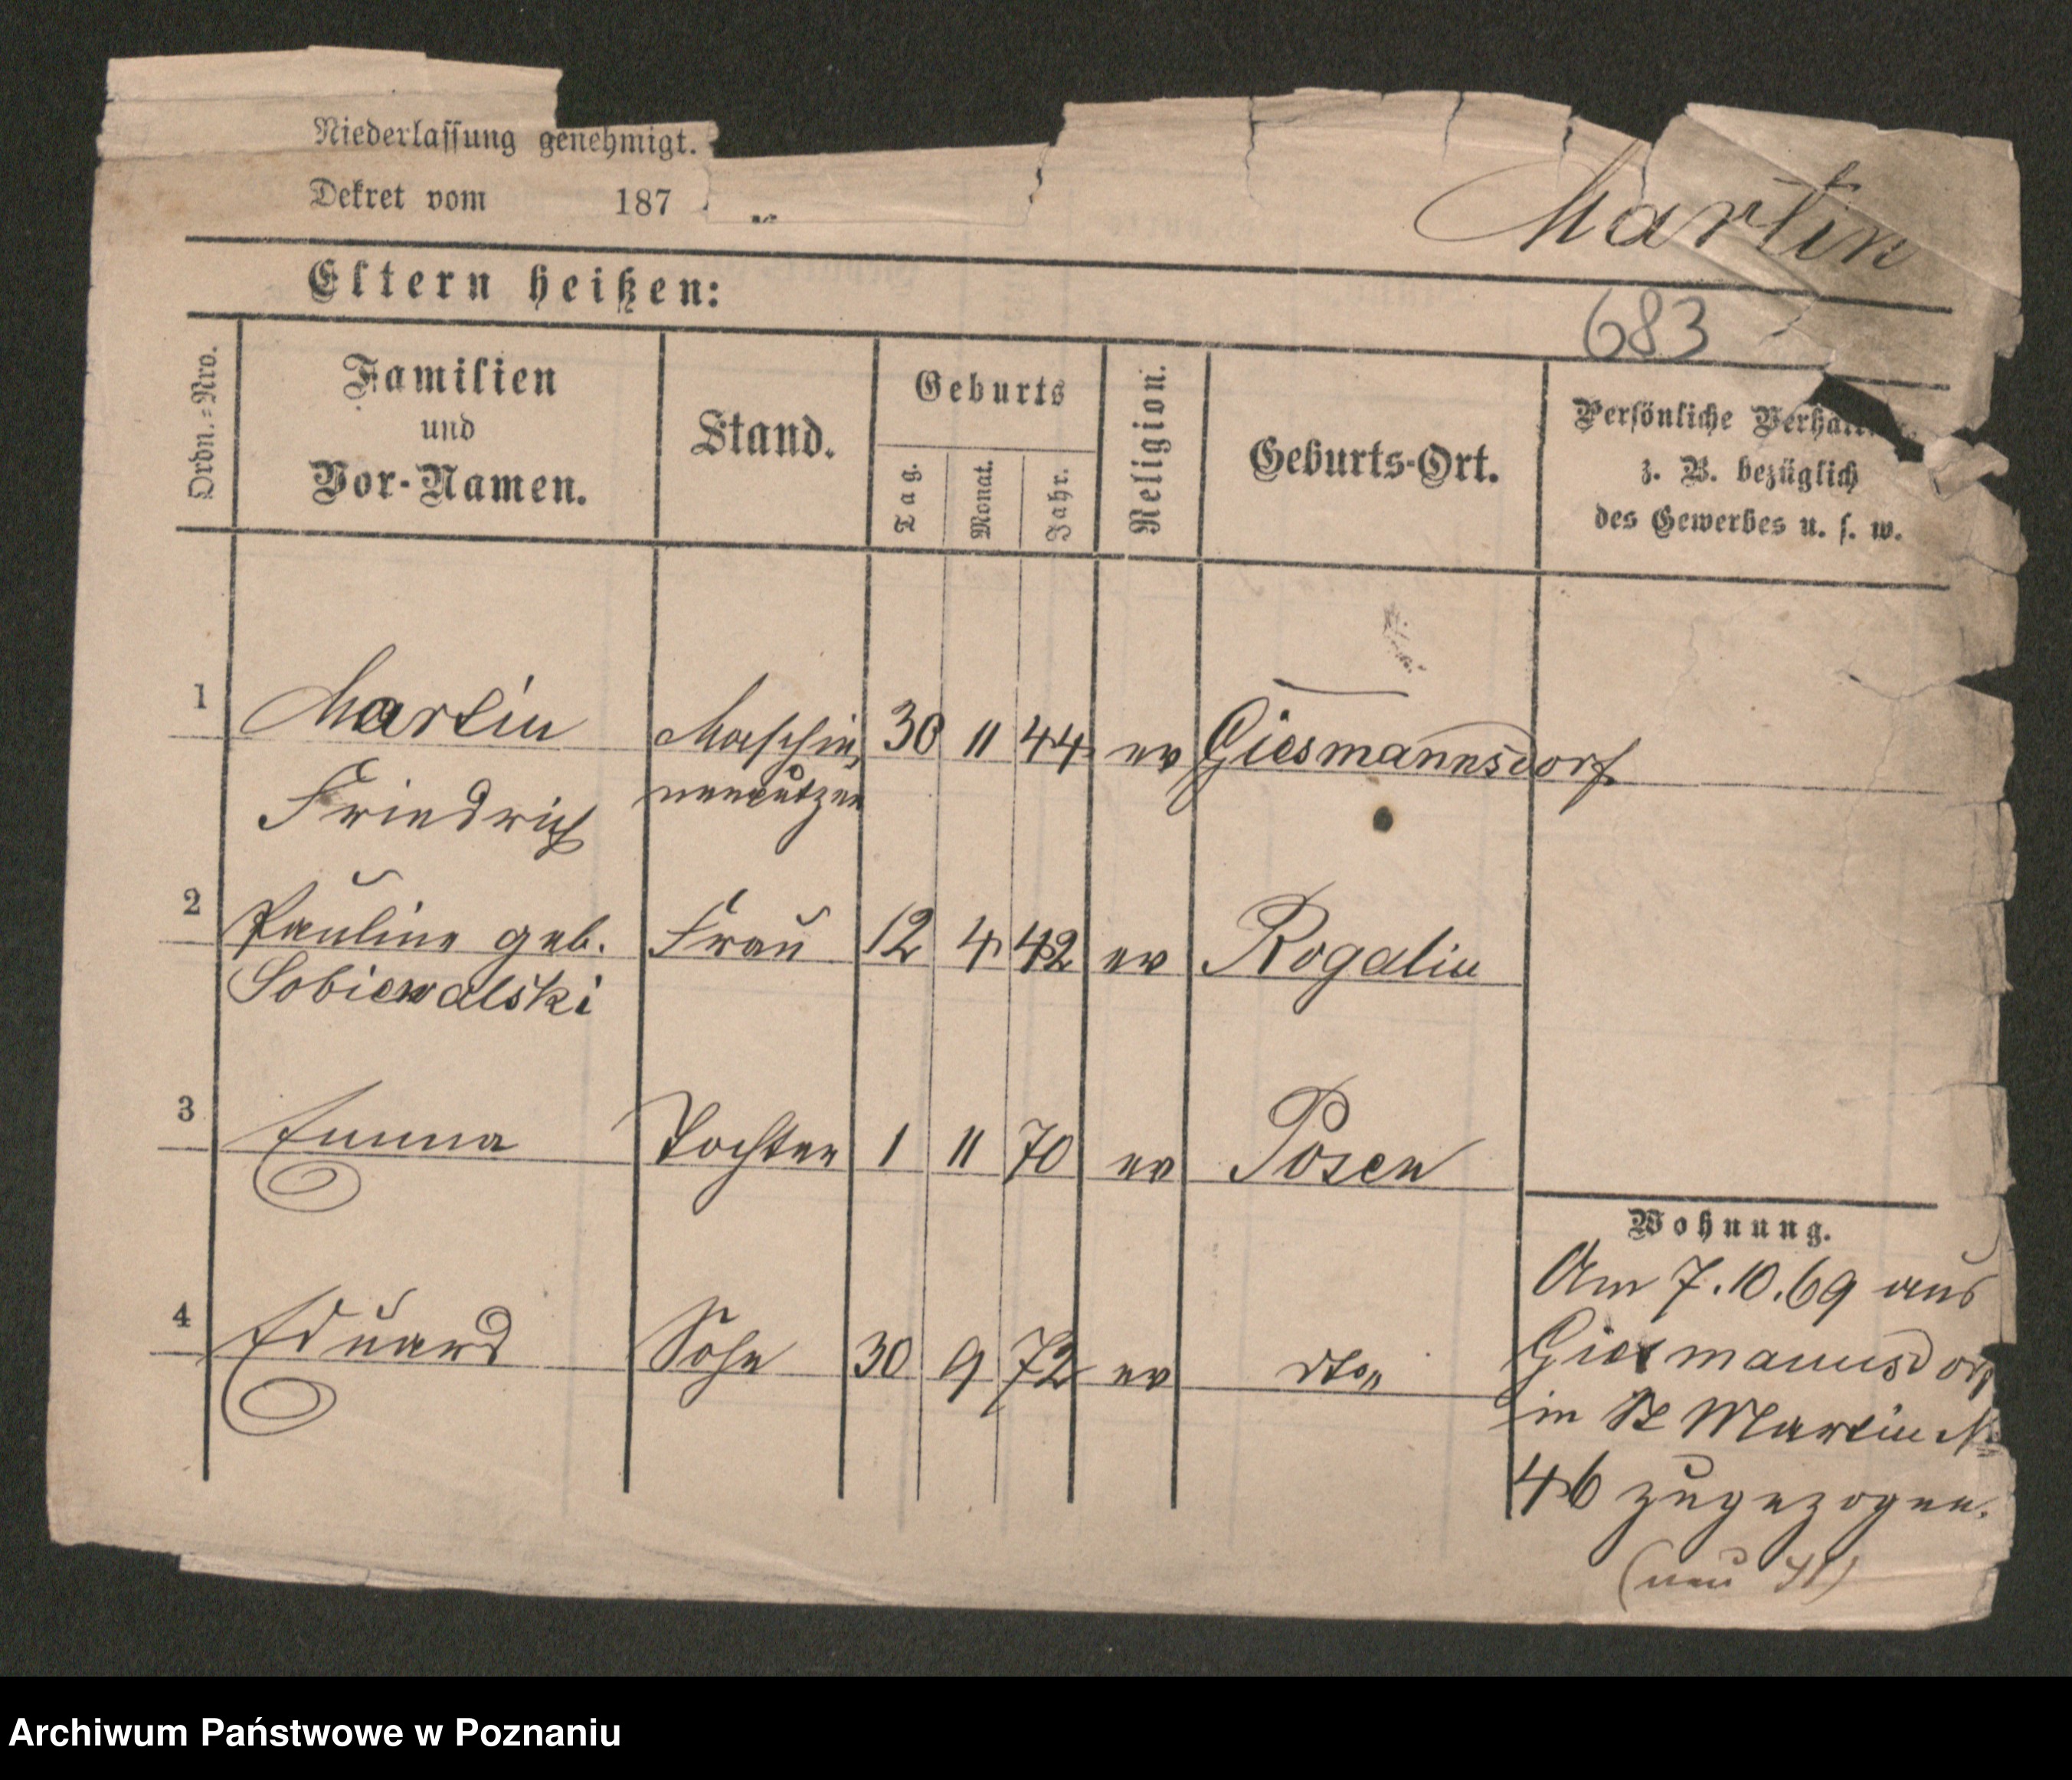 Niederlassung genehmigt.
Dekret vom 187
Martin
Eltern heißen:
683
Ordn.-Nro.
Familien
und
Vor-Namen.
Stand.
Geburts
Tag.
Monat.
Jahr.
Religion.
Geburts-Ort.
Persönliche
z. B. bezüglich
des Gewerbes u. s. w.
1 Martin Maschin 30 11 44 ev Giesmannsdorf
Friedrich nenputzer
2 Pauline geb. Frau 12 4 42 ev Rogalin
Sobiewalski
3 Emma Tochter 1 11 70 ev Posen
4 Eduard Sohn 30 9 72 ev dto
Wohnung.
Am 7.10.69 aus
Giesmannsdorf
in St Martin No
46 zugezogen.
(neu
Archiwum Państwowe w Poznaniu